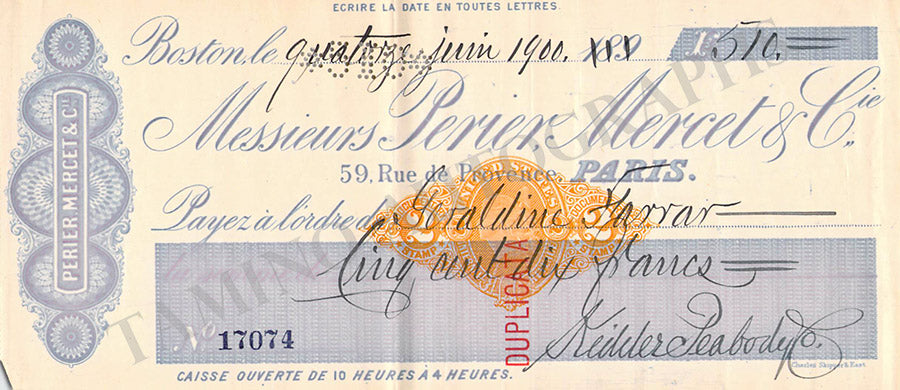 ECRIRE LA DATE EN TOUTES LETTRES.
Boston, le quatorze juin 1900. 189 F. 510.
PERIER MERCET & Cie
Messieurs Perier, Mercet & Cie.
59, Rue de Provence, PARIS.
Payez à l'ordre de Geraldine Farrar
UNITED STATES
DOCUMENT
2 2
STAMP
Cinq cent dix francs
DUPLICATA
No 17074
Kidder Peabody Co.
Charles Skipper & East.
CAISSE OUVERTE DE 10 HEURES À 4 HEURES.
TAMINO AUTOGRAPHS